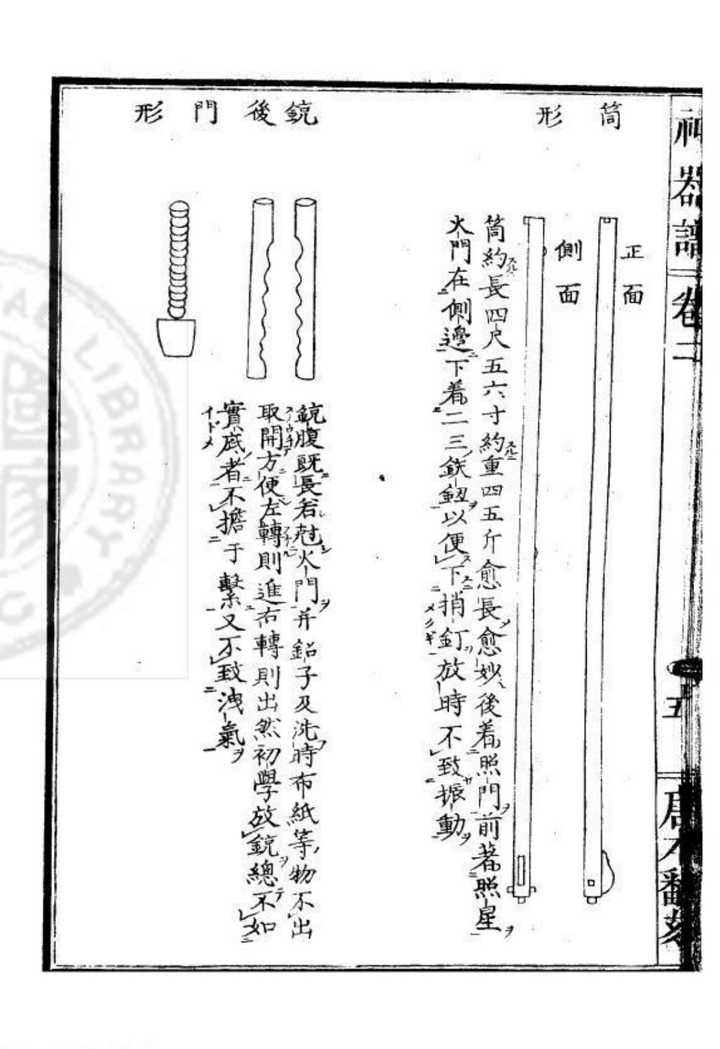 神器譜 卷二
五
筒形
正面
側面
筒約長四尺五六寸約重四五斤愈長愈妙後着照門前著照星
火門在側邊下着二三鈇鈕以便下捎釘放時不致振動
銃後門形
銃腹既長若尅火門并鉛子及洗時布紙等物不出
取開方便左轉則進右轉則出然初學放銃總不如
實底者不擔于繫又不致洩氣
LIBRARY